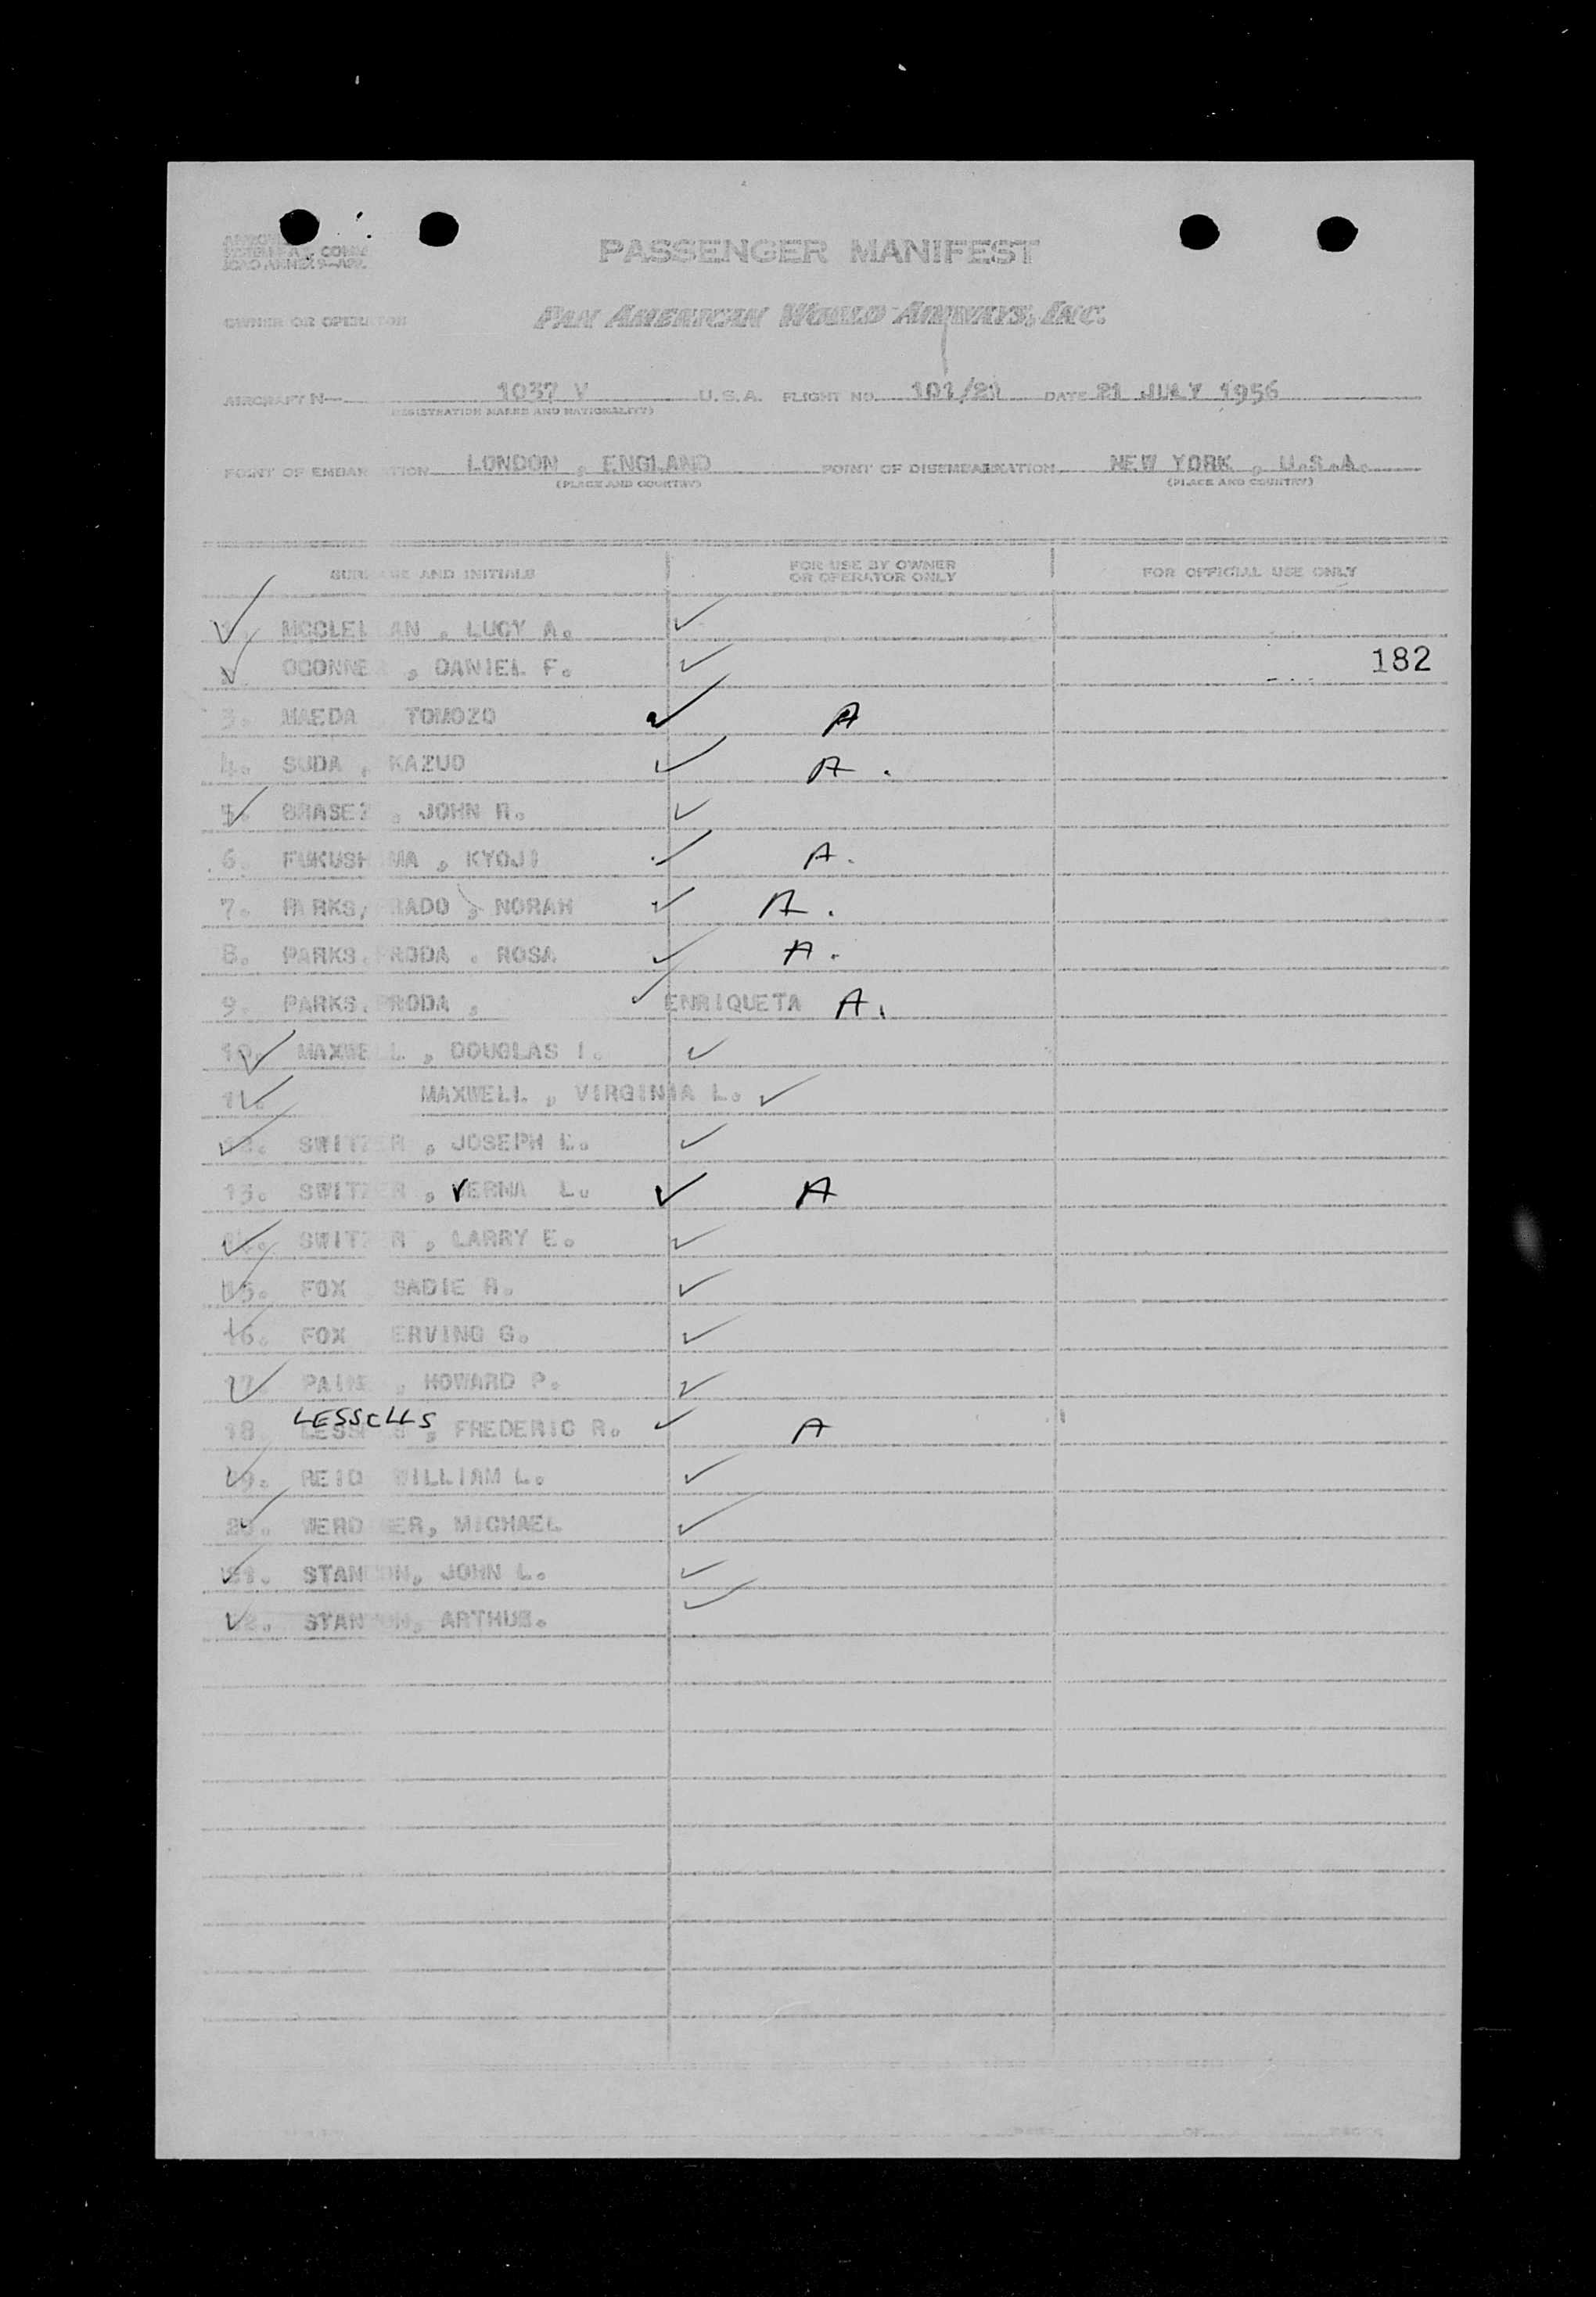 PASSENGER MANIFEST
OWNER OR OPERATOR PAN AMERICAN WORLD AIRWAYS, INC.
AIRCRAFT N— 1037 V U.S.A. FLIGHT NO. 101/21 DATE 21 JULY 1956
(REGISTRATION MARKS AND NATIONALITY)
POINT OF EMBARKATION LONDON , ENGLAND POINT OF DISEMBARKATION NEW YORK , U.S.A.
(PLACE AND COUNTRY) (PLACE AND COUNTRY)
SURNAME AND INITIALS FOR USE BY OWNER OR OPERATOR ONLY FOR OFFICIAL USE ONLY
1. MCCLELLAN , LUCY A.
OCONNE , DANIEL F. 182
3. MAEDA TOMOZO A
4. SUDA , KAZUO A.
5. , JOHN R.
6. FUKUSHIMA , KYOJI A.
7. PARKS, , NORAH A.
8. PARKS. RODA . ROSA A.
9. PARKS. PRODA , ENRIQUETA A.
10. MAXWELL , DOUGLAS I.
11. MAXWELL , VIRGINIA L.
12. SWITZER , JOSEPH E.
13. SWITZER , VERNA L. A
14. SWITZER , LARRY E.
15. FOX SADIE R.
16. FOX ERVING G.
17. PAINE , HOWARD P.
LESSELLS
18. , FREDERIC R. A
19. REID WILLIAM L.
20. WERD ER, MICHAEL
21. STAN ON, JOHN L.
22. STAN ON, ARTHUR.